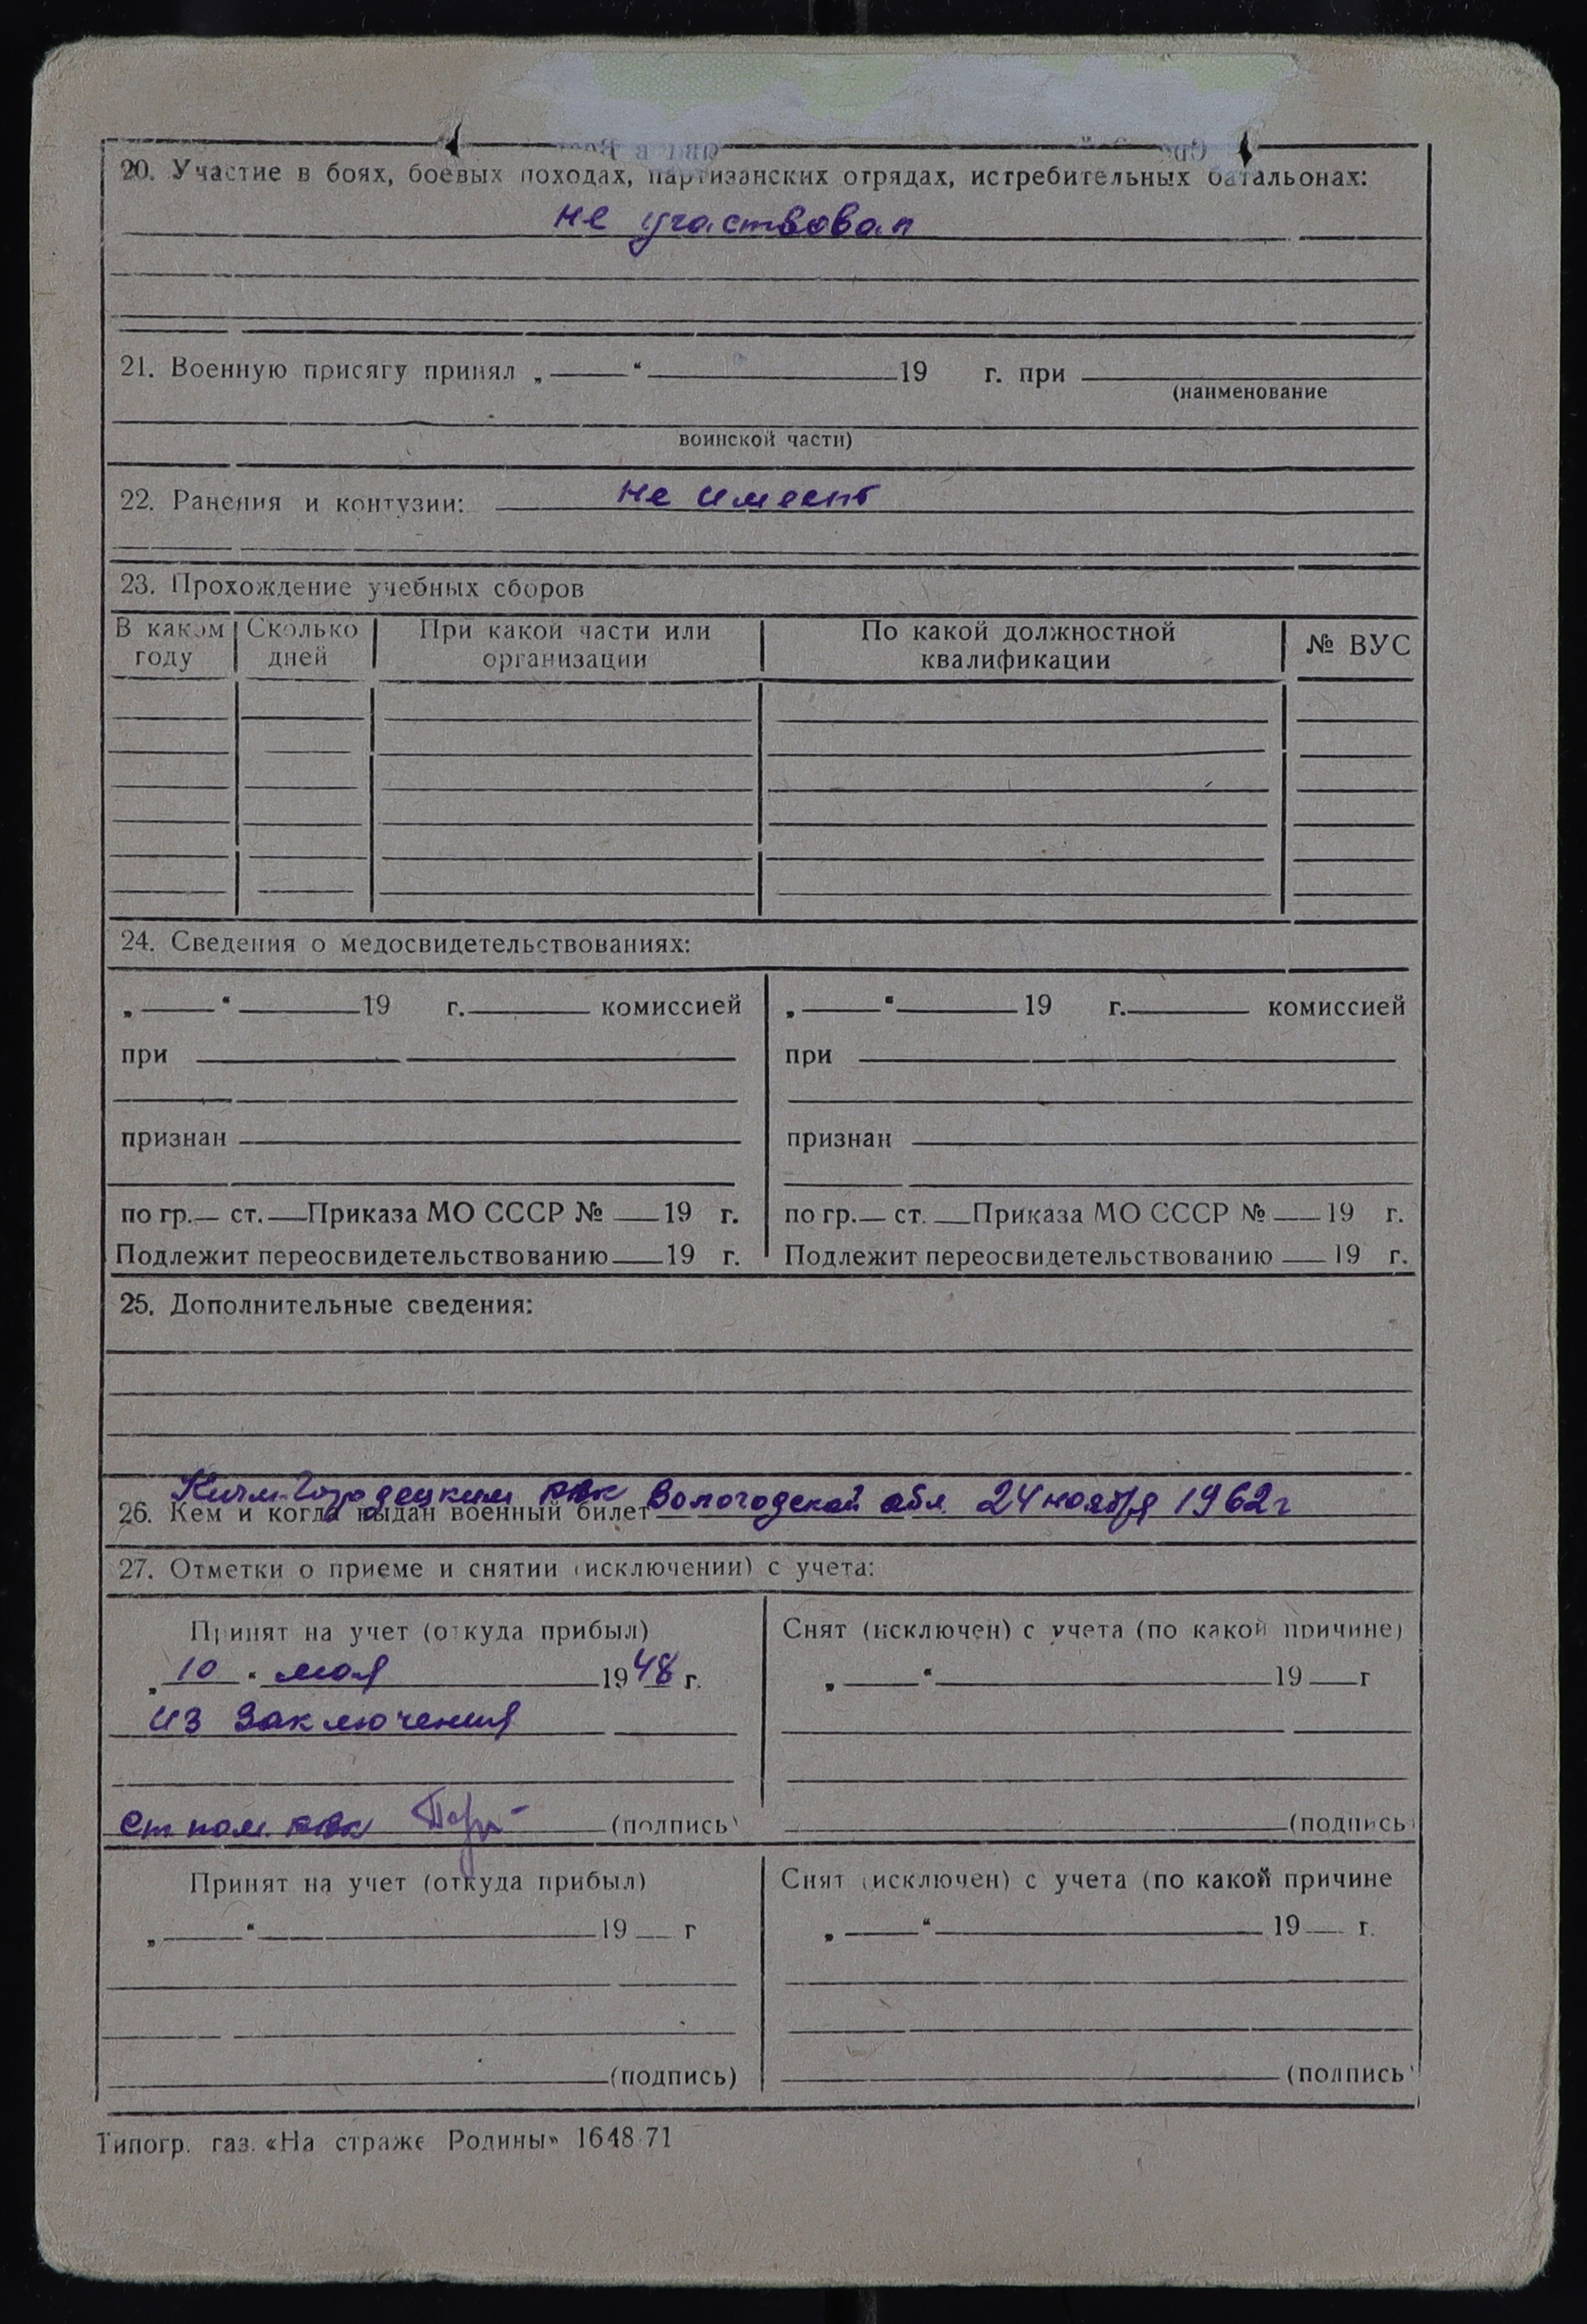 20. Участие в боях, боевых походах, партизанских отрядах, истребительных батальонах:
не участвовал
21. Военную присягу принял „ “ 19 г. при
(наименование
воинской части)
22. Ранения и контузии: не имеет
23. Прохождение учебных сборов
В каком году Сколько дней При какой части или организации По какой должностной квалификации № ВУС
24. Сведения о медосвидетельствованиях:
„ “ 19 г. комиссией „ “ 19 г. комиссией
при при
признан признан
по гр. ст. Приказа МО СССР № 19 г. по гр. ст. Приказа МО СССР № 19 г.
Подлежит переосвидетельствованию 19 г. Подлежит переосвидетельствованию 19 г.
25. Дополнительные сведения:
26. Кем и когда выдан военный билет Кичм-Городецким РВК Вологодской обл. 24 ноября 1962г
27. Отметки о приеме и снятии (исключении) с учета:
Принят на учет (откуда прибыл) Снят (исключен) с учета (по какой причине)
„10“ мая 1948 г. „ “ 19 г
из заключения
ст пом. РВК (подпись) (подпись)
Принят на учет (откуда прибыл) Снят (исключен) с учета (по какой причине
„ “ 19 г „ “ 19 г.
(подпись) (подпись)
Типогр. газ. «На страже Родины» 1648-71